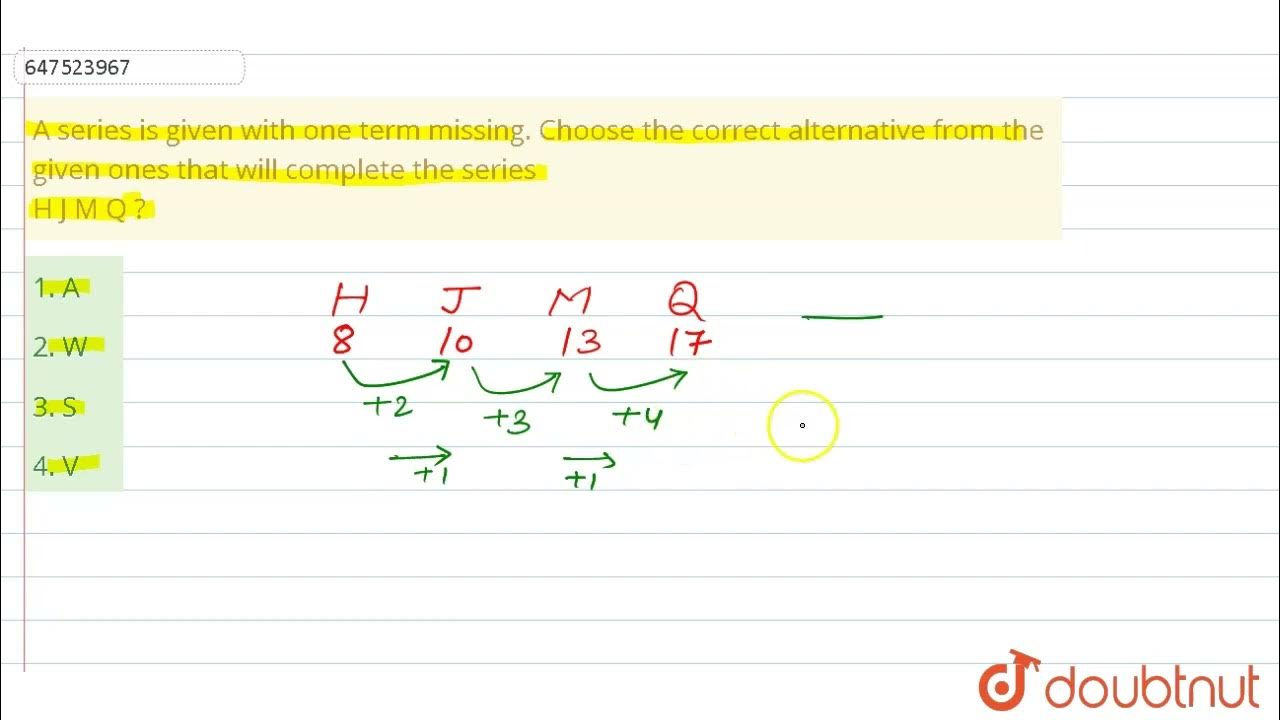 647523967
A series is given with one term missing. Choose the correct alternative from the
given ones that will complete the series
H J M Q ?
1. A
2. W
3. S
4. V
H J M Q
8 10 13 17
+2 +3 +4
+1 +1
doubtnut